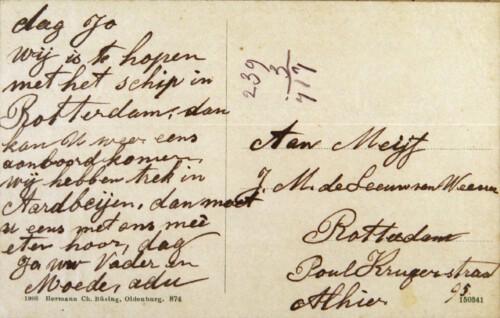 dag Jo
wij is te hopen
met het schip in
Rotterdam, dan
kan U weer eens
aanboord komen,
wij hebben trek in
Aardbeijen, dan moet
u eens met ons meê
eten hoor, dag
Jo uw Vader en
Moeder, adu
1906 Hermann Ch. Büsing, Oldenburg. 874
239
3
717
Aan Mejf
J. M. de Leeuw van Weenen
Rotterdam
Poul Krugerstraat
95.
Alhier
150341